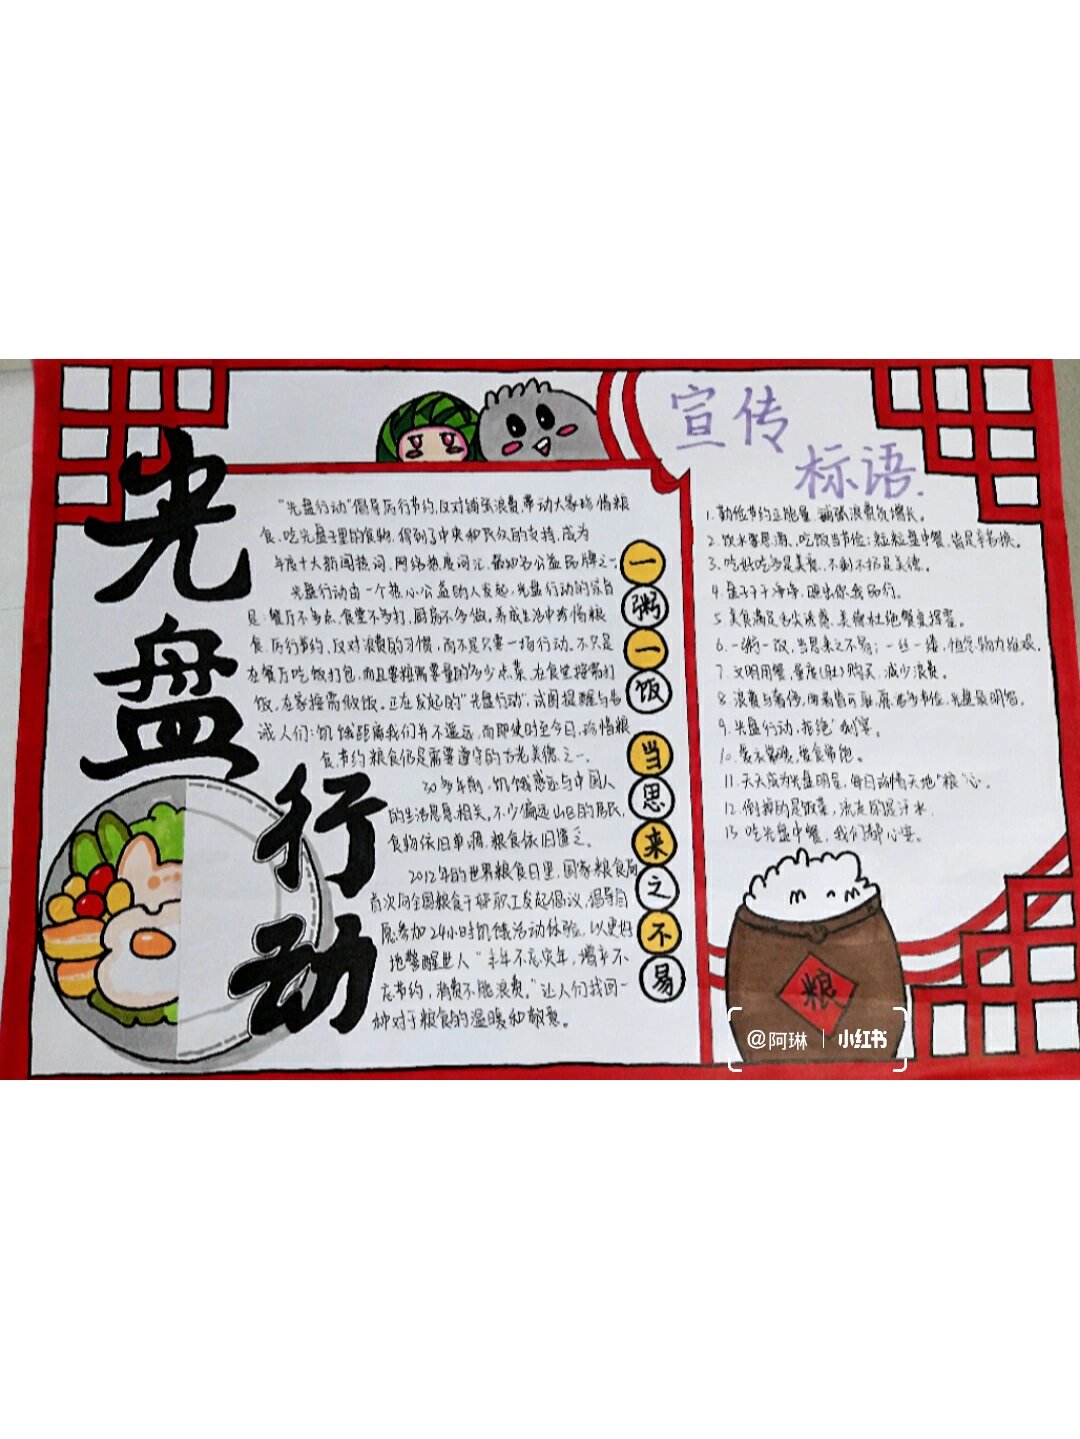 光盘行动
"光盘行动"倡导厉行节约,反对铺张浪费,带动大家珍惜粮
食、吃光盘子里的食物,得到了中央和民众的支持,成为
年度十大新闻热词、网络热度词汇、最知名公益品牌之一。
光盘行动由一个热心公益的人发起,光盘行动的宗旨
是:餐厅不多点、食堂不多打、厨房不多做。养成生活中珍惜粮
食、厉行节约、反对浪费的习惯,而不是只要一场行动。不只是
在餐厅吃饭打包,而且要按需要量的多少点菜,在食堂按需打
饭,在家按需做饭。正在发起的"光盘行动",试图提醒与告
诫人们:饥饿距离我们并不遥远,而即使时至今日,珍惜粮
食,节约粮食仍是需要遵守的古老美德之一。
30多年前,饥饿感还与中国人
的生活息息相关。不少偏远山区的居民,
食物依旧单调,粮食依旧匮乏。
2012年的世界粮食日里,国家粮食局
首次向全国粮食干部职工发起倡议,倡导自
愿参加24小时饥饿活动体验。以更好
地警醒世人"丰年不忘灾年,增产不
忘节约,消费不能浪费。"让人们找回一
种对于粮食的温暖和敬意。
一粥一饭当思来之不易
宣传
标语.
1.勤俭节约正能量,铺张浪费负增长。
2.饮水要思源、吃饭当节俭;粒粒盘中餐,皆是辛苦换。
3.吃好吃多是美食,不剩不扔是美德。
4.盘子干干净净,照出你我品行。
5.美食满足舌尖诱惑,美德杜绝餐桌挥霍。
6.一粥一饭,当思来之不易;一丝一缕,恒念物力维艰。
7.文明用餐,量度(肚)购买,减少浪费。
8.浪费与奢侈,两者皆可耻,
9.光盘行动,拒绝"剩"宴。
10.
11.天天成为光盘明星,每日珍惜天地"粮"心。
12.倒掉的是饭菜,流走的是汗水.
13.吃光盘中餐,我们都心安。
粮
@阿琳 | 小红书